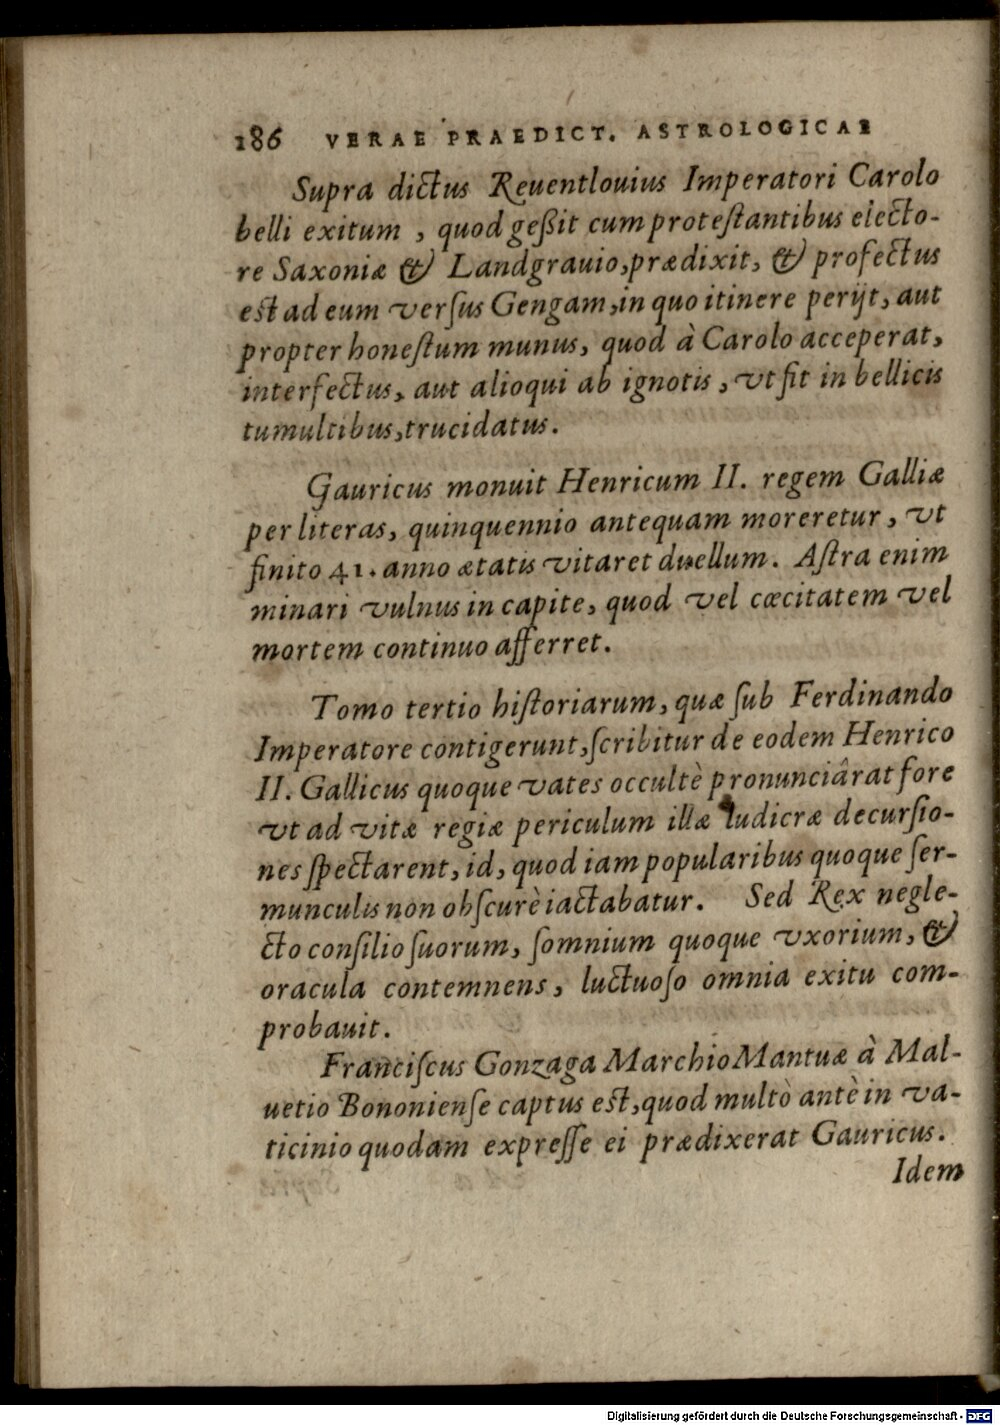 186 VERAE PRAEDICT. ASTROLOGICAE
Supra dictus Reuentlouius Imperatori Carolo
belli exitum , quod geßit cum proteſtantibus electo-
re Saxoniæ & Landgrauio, prædixit, & profectus
eſt ad eum verſus Gengam, in quo itinere perijt, aut
propter honeſtum munus, quod à Carolo acceperat,
interfectus, aut alioqui ab ignotis , vt fit in bellicis
tumultibus, trucidatus.
Gauricus monuit Henricum II. regem Galliæ
per literas, quinquennio antequam moreretur, vt
finito 41. anno ætatis vitaret duellum. Aſtra enim
minari vulnus in capite, quod vel cæcitatem vel
mortem continuo afferret.
Tomo tertio hiſtoriarum, quæ ſub Ferdinando
Imperatore contigerunt, ſcribitur de eodem Henrico
II. Gallicus quoque vates occultè pronunciârat fore
vt ad vitæ regiæ periculum illæ ludicræ decurſio-
nes ſpectarent, id, quod iam popularibus quoque ſer-
munculis non obſcurè iactabatur. Sed Rex negle-
cto conſilio ſuorum, ſomnium quoque vxorium, &
oracula contemnens, luctuoſo omnia exitu com-
probauit.
Franciſcus Gonzaga Marchio Mantuæ à Mal-
uetio Bononienſe captus eſt, quod multò antè in va-
ticinio quodam expreſſe ei prædixerat Gauricus.
Idem
Digitalisierung gefördert durch die Deutsche Forschungsgemeinschaft - DFG